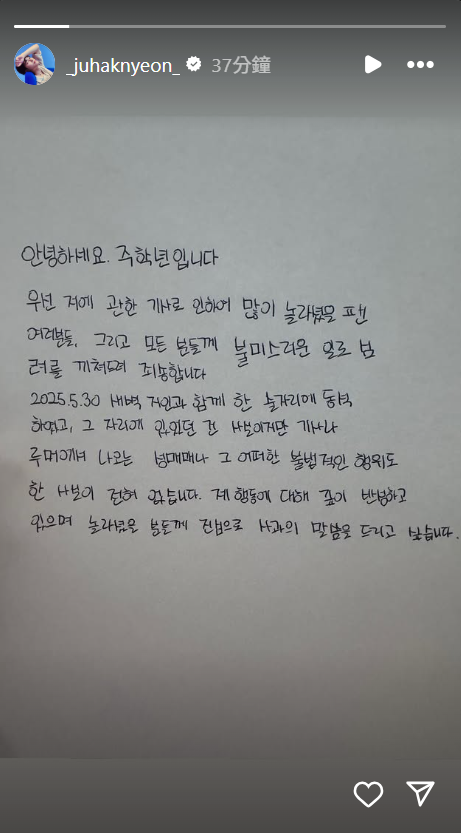 _juhaknyeon_ 37分鐘
안녕하세요. 주학년입니다
우선 저에 관한 기사로 인하여 많이 놀라셨을 팬
여러분들, 그리고 모든 분들께 불미스러운 일로 심
려를 끼쳐드려 죄송합니다
2025.5.30 새벽 지인과 함께 한 술자리에 동석
하였고, 그 자리에 있었던 건 사실이지만 기사나
루머에서 나오는 성매매나 그 어떠한 불법적인 행위도
한 사실이 전혀 없습니다. 제 행동에 대해 깊이 반성하고
있으며 놀라셨을 분들께 진심으로 사과의 말씀을 드리고 싶습니다.